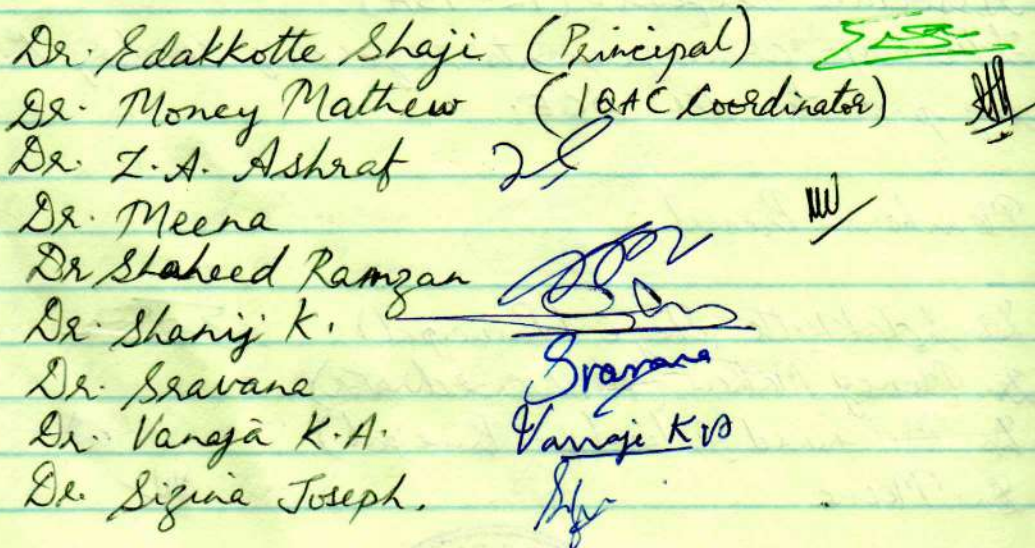 Dr. Edakkotte Shaji (Principal)
Dr. Money Mathew (IQAC Coordinator)
Dr. Z.A. Ashraf
Dr. Meena
Dr Shaheed Ramzan
Dr. Shanij K.
Dr. Sravana Sravana
Dr. Vanaja K.A. Vanaja KA
Dr. Sizina Joseph.